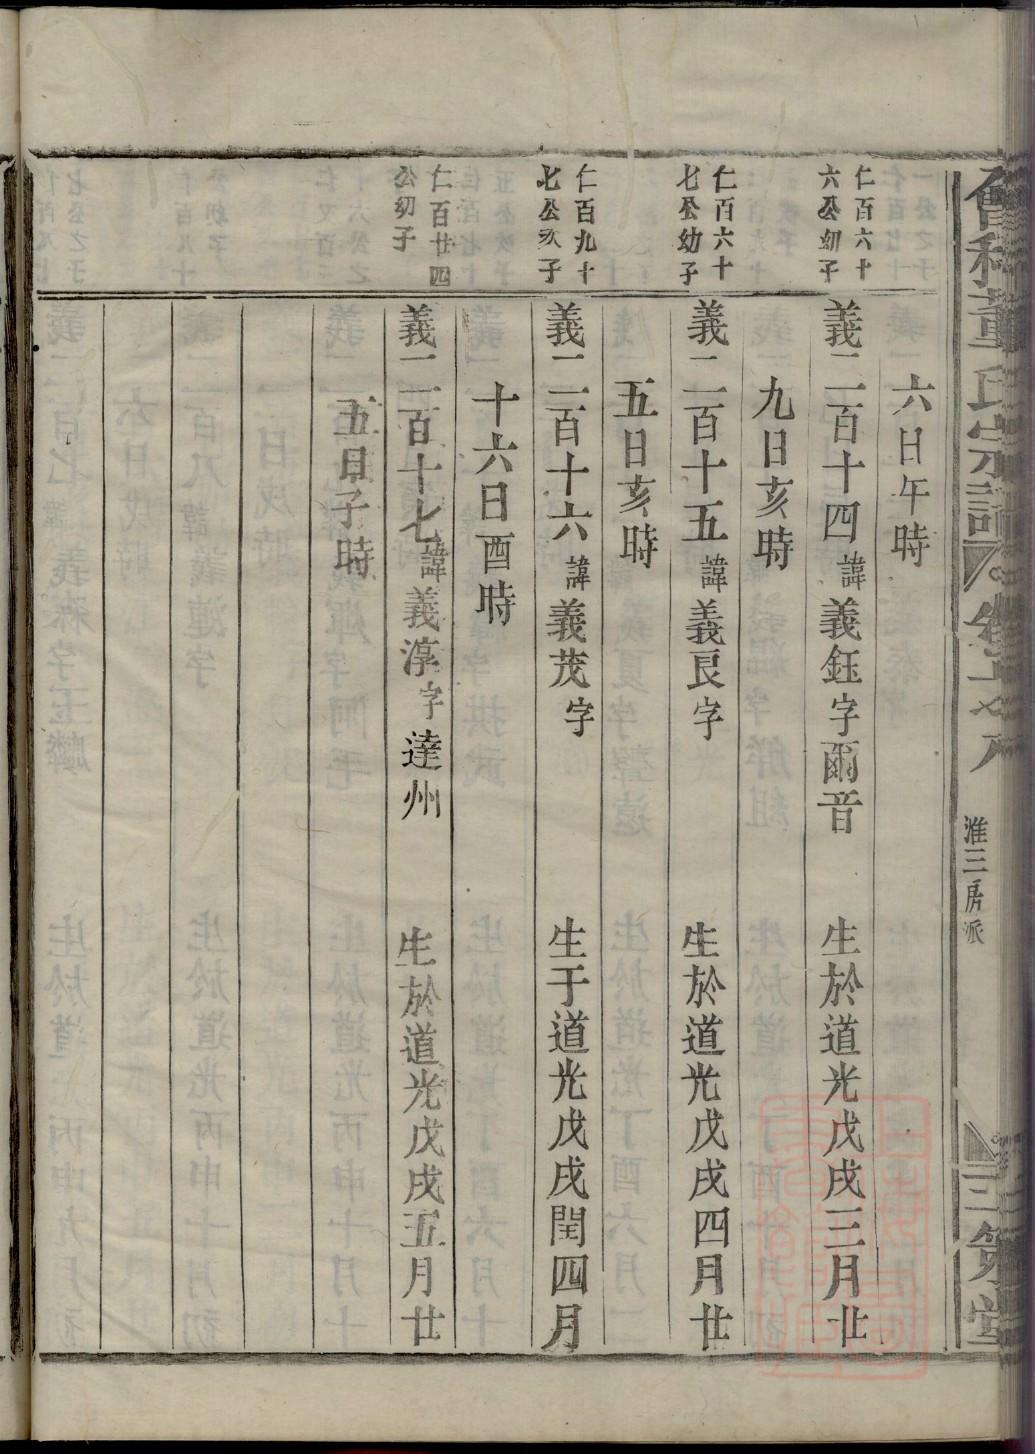 會稽董氏宗譜
淮三房派
三策堂
六日午時
仁百六十
六公幼子
義二百十四諱義鈺字爾音 生於道光戊戌三月廿
九日亥時
仁百六十
七公幼子
義二百十五諱義良字 生於道光戊戌四月廿
五日亥時
仁百九十
七公次子
義二百十六諱義茂字 生于道光戊戌閏四月
十六日酉時
仁百廿四
公幼子
義二百十七諱義淳字達州 生於道光戊戌五月廿
五日子時